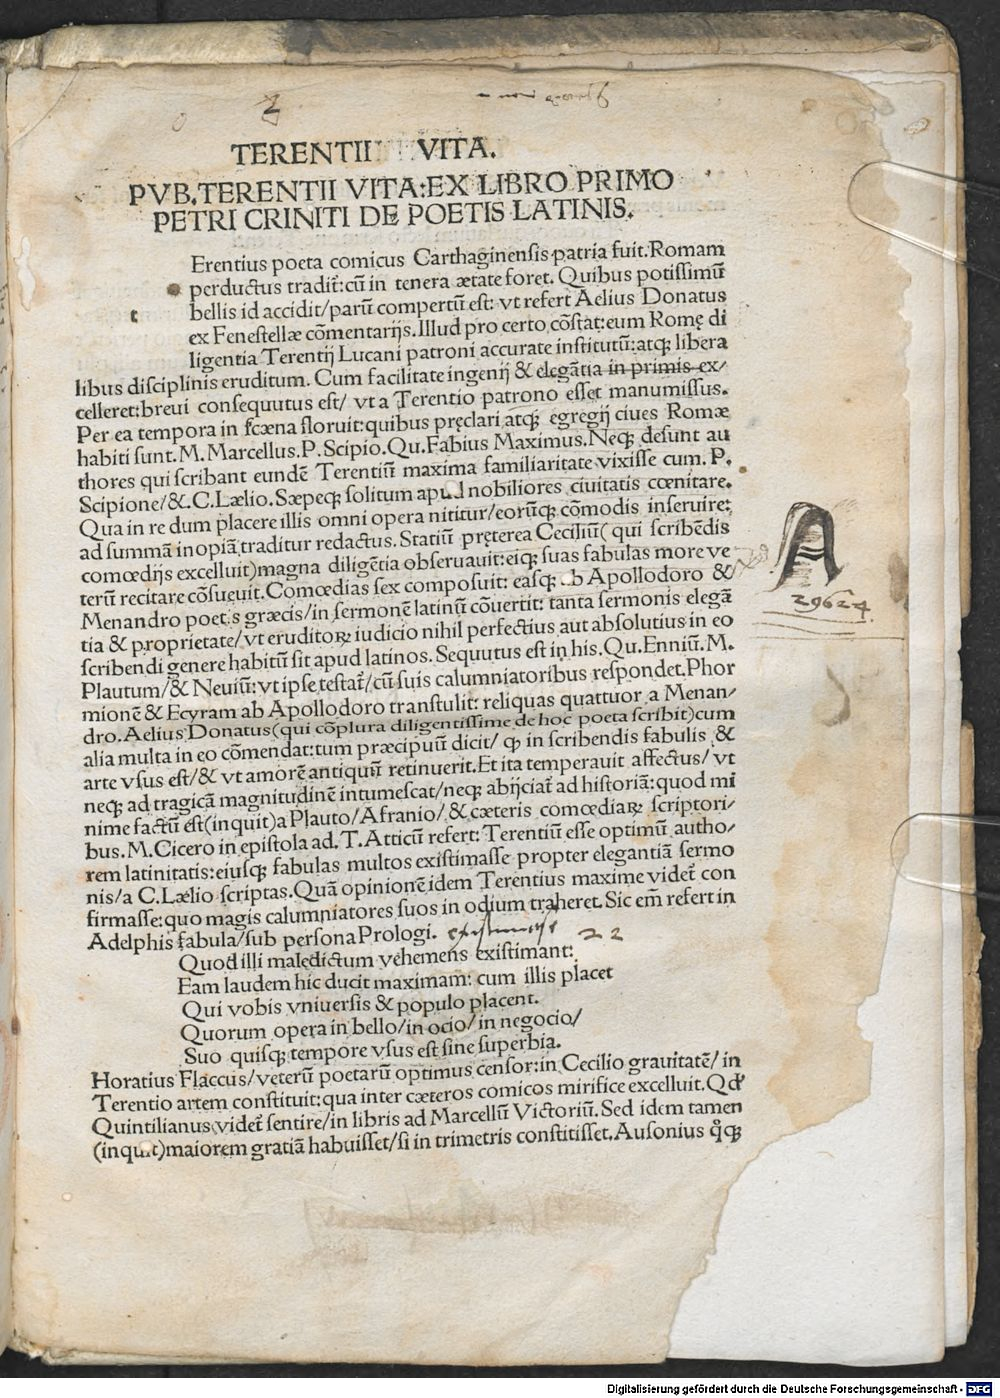 TERENTII VITA.
PVB. TERENTII VITA: EX LIBRO PRIMO
PETRI CRINITI DE POETIS LATINIS.
t
Erentius poeta comicus Carthaginensis patria fuit. Romam
perductus tradit̃: cū in tenera ætate foret. Quibus potissimū
bellis id accidit/ parū compertū est: vt refert Aelius Donatus
ex Fenestellæ cōmentarijs. Illud pro certo cōstat: eum Romę di
ligentia Terentij Lucani patroni accurate institutū: atqꝫ libera
libus disciplinis eruditum. Cum facilitate ingenij & elegātia in primis ex/
celleret: breui consequutus est/ vt a Terentio patrono esset manumissus.
Per ea tempora in scæna floruit: quibus pręclari atqꝫ egregij ciues Romæ
habiti sunt. M. Marcellus. P. Scipio. Qu. Fabius Maximus. Neqꝫ desunt au
thores qui scribant eundē Terentiū maxima familiaritate vixisse cum. P.
Scipione/ &. C. Lælio. Sæpeqꝫ solitum apud nobiliores ciuitatis cœnitare.
Qua in re dum placere illis omni opera nititur/ eorūqꝫ cōmodis inseruire:
ad summā inopiā traditur redactus. Statiū pręterea Ceciliū ( qui scribēdis
comœdijs excelluit) magna diligētia obseruauit: eiqꝫ suas fabulas more ve
terū recitare cōsueuit. Comœdias sex composuit: easqꝫ ab Apollodoro &
Menandro poetis græcis/ in sermonē latinū cōuertit: tanta sermonis elegā
tia & proprietate/ vt eruditoꝝ iudicio nihil perfectius aut absolutius in eo
scribendi genere habitū sit apud latinos. Sequutus est in his. Qu. Enniū. M.
Plautum/ & Neuiū: vt ipse testat̃/ cū suis calumniatoribus respondet. Phor
mionē & Ecyram ab Apollodoro transtulit: reliquas quattuor a Menan/
dro. Aelius Donatus (qui cōplura diligentissime de hoc poeta scribit) cum
alia multa in eo cōmendat: tum præcipuū dicit/ ꝙ in scribendis fabulis &
arte vsus est/ & vt amorē antiquū retinuerit. Et ita temperauit affectus/ vt
neqꝫ ad tragicā magnitudinē intumescat/ neqꝫ abijciat̃ ad historiā: quod mi
nime factū est (inquit) a Plauto/ Afranio/ & cæteris comœdiaꝝ scriptori/
bus. M. Cicero in epistola ad. T. Atticū refert: Terentiū esse optimū autho/
rem latinitatis: eiusqꝫ fabulas multos existimasse propter elegantiā sermo
nis/ a C. Lælio scriptas. Quā opinionē idem Terentius maxime videt̃ con
firmasse: quo magis calumniatores suos in odium traheret. Sic em̄ refert in
Adelphis fabula/ sub persona Prologi.
22
Quod illi maledictum vehemens existimant:
Eam laudem hic ducit maximam: cum illis placet
Qui vobis vniuersis & populo placent.
Quorum opera in bello/ in ocio/ in negocio/
Suo quisqꝫ tempore vsus est sine superbia.
Horatius Flaccus/ veterū poetarū optimus censor: in Cecilio grauitatē/ in
Terentio artem constituit: qua inter cæteros comicos mirifice excelluit. Qd'
Quintilianus videt̃ sentire/ in libris ad Marcellū Victoriū. Sed idem tamen
(inquit) maiorem gratiā habuisset/ si in trimetris constitisset. Ausonius q̊qꝫ
A
29624
Digitalisierung gefördert durch die Deutsche Forschungsgemeinschaft - DFG